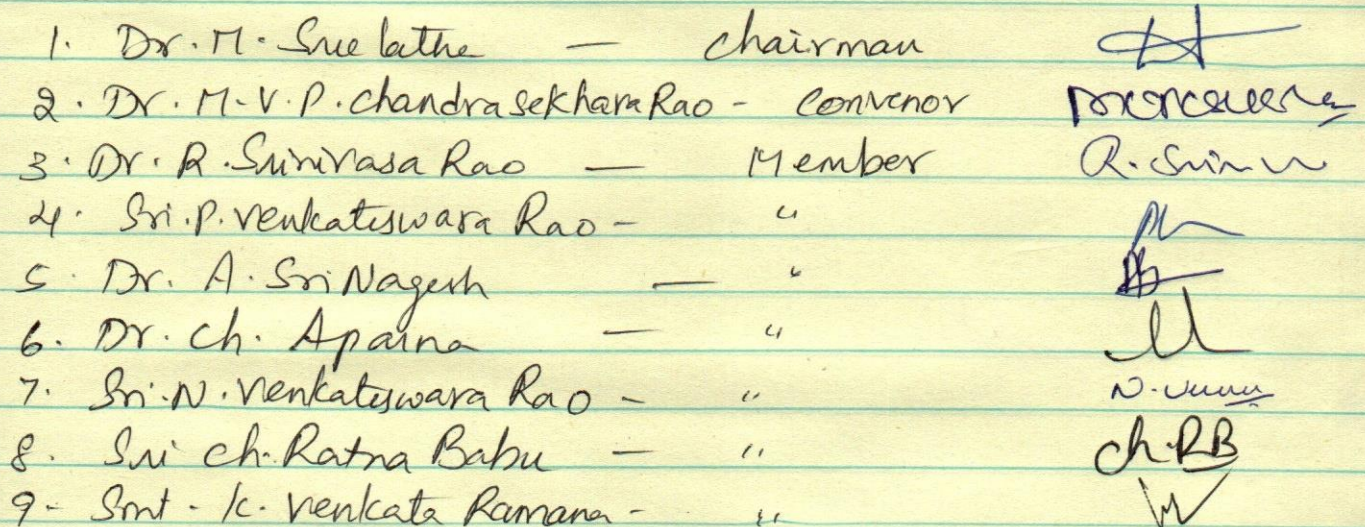 1. Dr. M. Sree latha — chairman
2. Dr. M.V.P. chandra sekhara Rao - convenor
3. Dr. R. Srinivasa Rao — Member R. Srin
4. Sri. P. Venkateswara Rao - "
5 Dr. A. Sri Nagesh — "
6. Dr. ch. Aparna — "
7. Sri. N. Venkateswara Rao - "
8. Sri ch. Ratna Babu — " ch. RB
9- Smt. K. Venkata Ramana - "